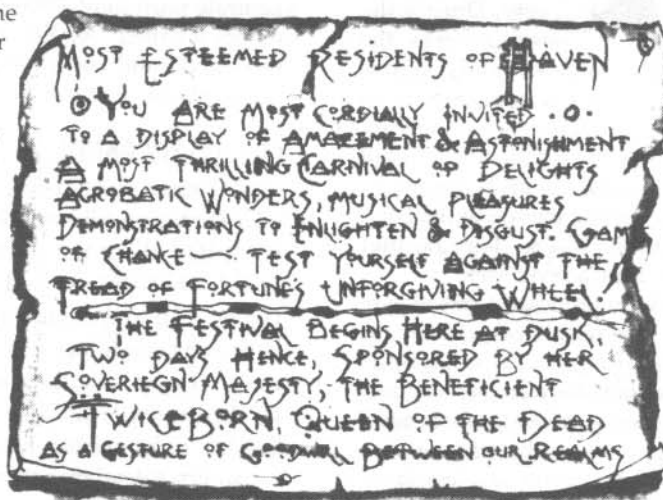 ne
r
Most Esteemed Residents of Haven
You Are Most Cordially Invited
to a display of Amazement & Astonishment
A most thrilling Carnival of Delights
Acrobatic Wonders, musical pleasures
Demonstrations to Enlighten & Disgust. Game
of Chance — Test yourself against the
Tread of Fortune's Unforgiving Wheel.
The Festival Begins Here at Dusk,
Two days hence, Sponsored by Her
Soveriegn Majesty, the Beneficient
Twiceborn, Queen of the Dead
as a gesture of Goodwill Between our Realms